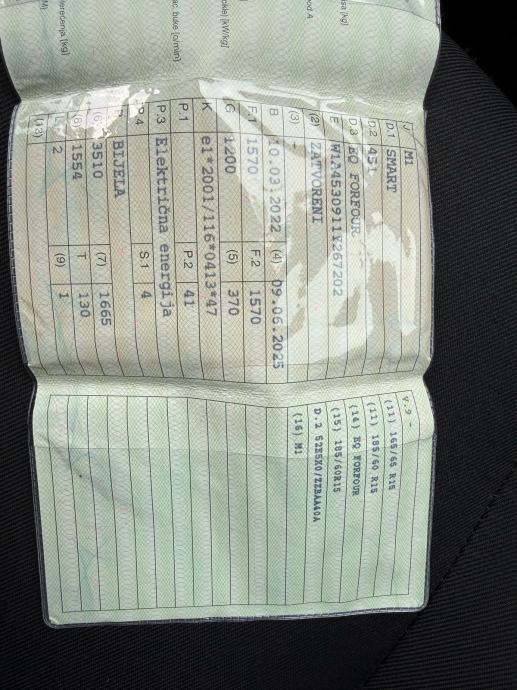 J M1
D.1 SMART
D.2 451
D.3 EQ FORFOUR
E W1A4530911Y267202
(2) ZATVORENI
(3) -
B 10.03.2022 (4) 09.06.2025
F.1 1570 F.2 1570
G 1200 (5) 370
K e1*2001/116*0413*47
P.1 P.2 41
P.3 Električna energija
P.4 S.1 4
BIJELA
(6) 3510 (7) 1665
(8) 1554 T 130
L 2 (9) 1
(13)
V.9 -
(11) 165/65 R15
(11) 185/60 R15
(14) EQ FORFOUR
(15) 185/60R15
D.2 52E5X0/ZZBAA40A
(16) M1